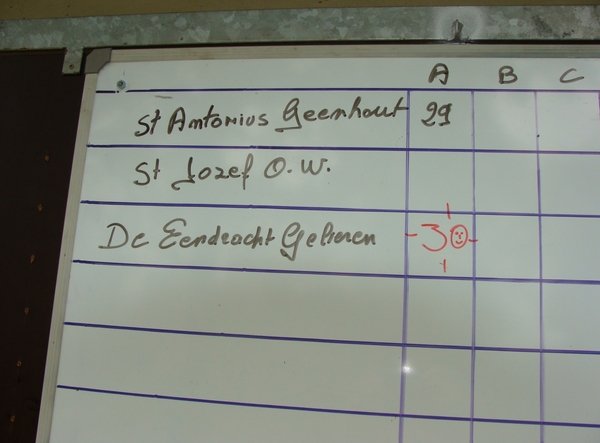 A B C
St Antonius Geenhout 29
St Jozef O.W.
De Eendracht Gelieren 30